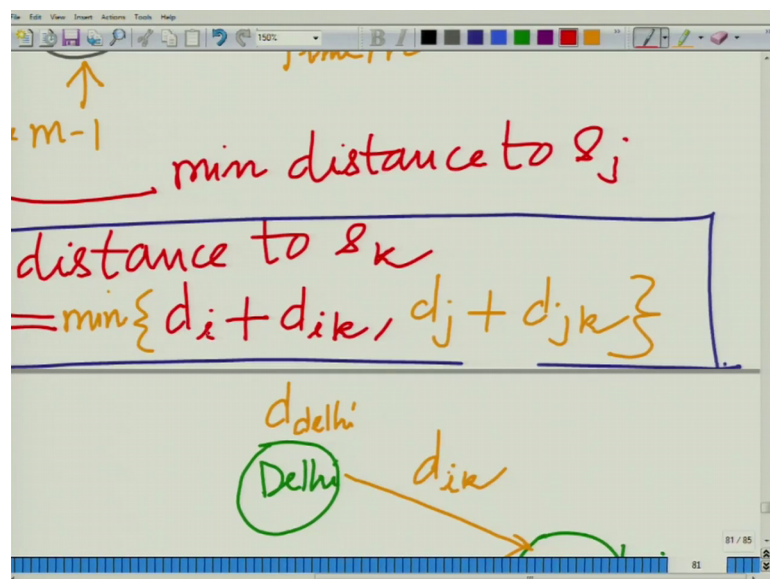 File Edit View Insert Actions Tools Help
150%
B I
m-1
min distance to s_j
distance to s_k
= min{d_i + d_ik, d_j + d_jk}
d_delhi
Delhi
d_ik
81 / 85
81